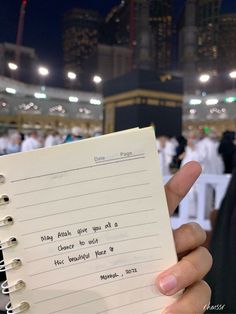 Date Page
May Allah give you all a
Chance to visit
this beautiful place
Makkah, 2022